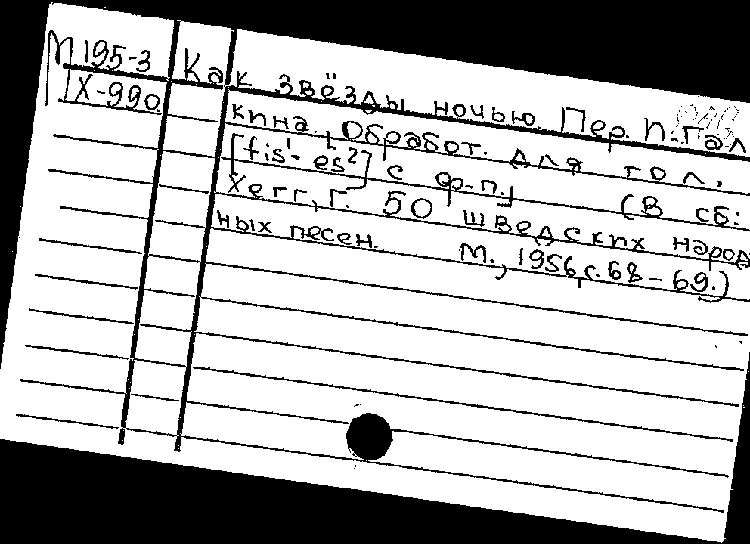 М 195-3 Как звёзды ночью. Пер. П. Гал
IX-990 кина, Обработ. для гол.
[fis¹- es²] с ф-п., (В сб:
Хегг, Г. 50 шведских народ
ных песен. М., 1956, с. 68-69.)